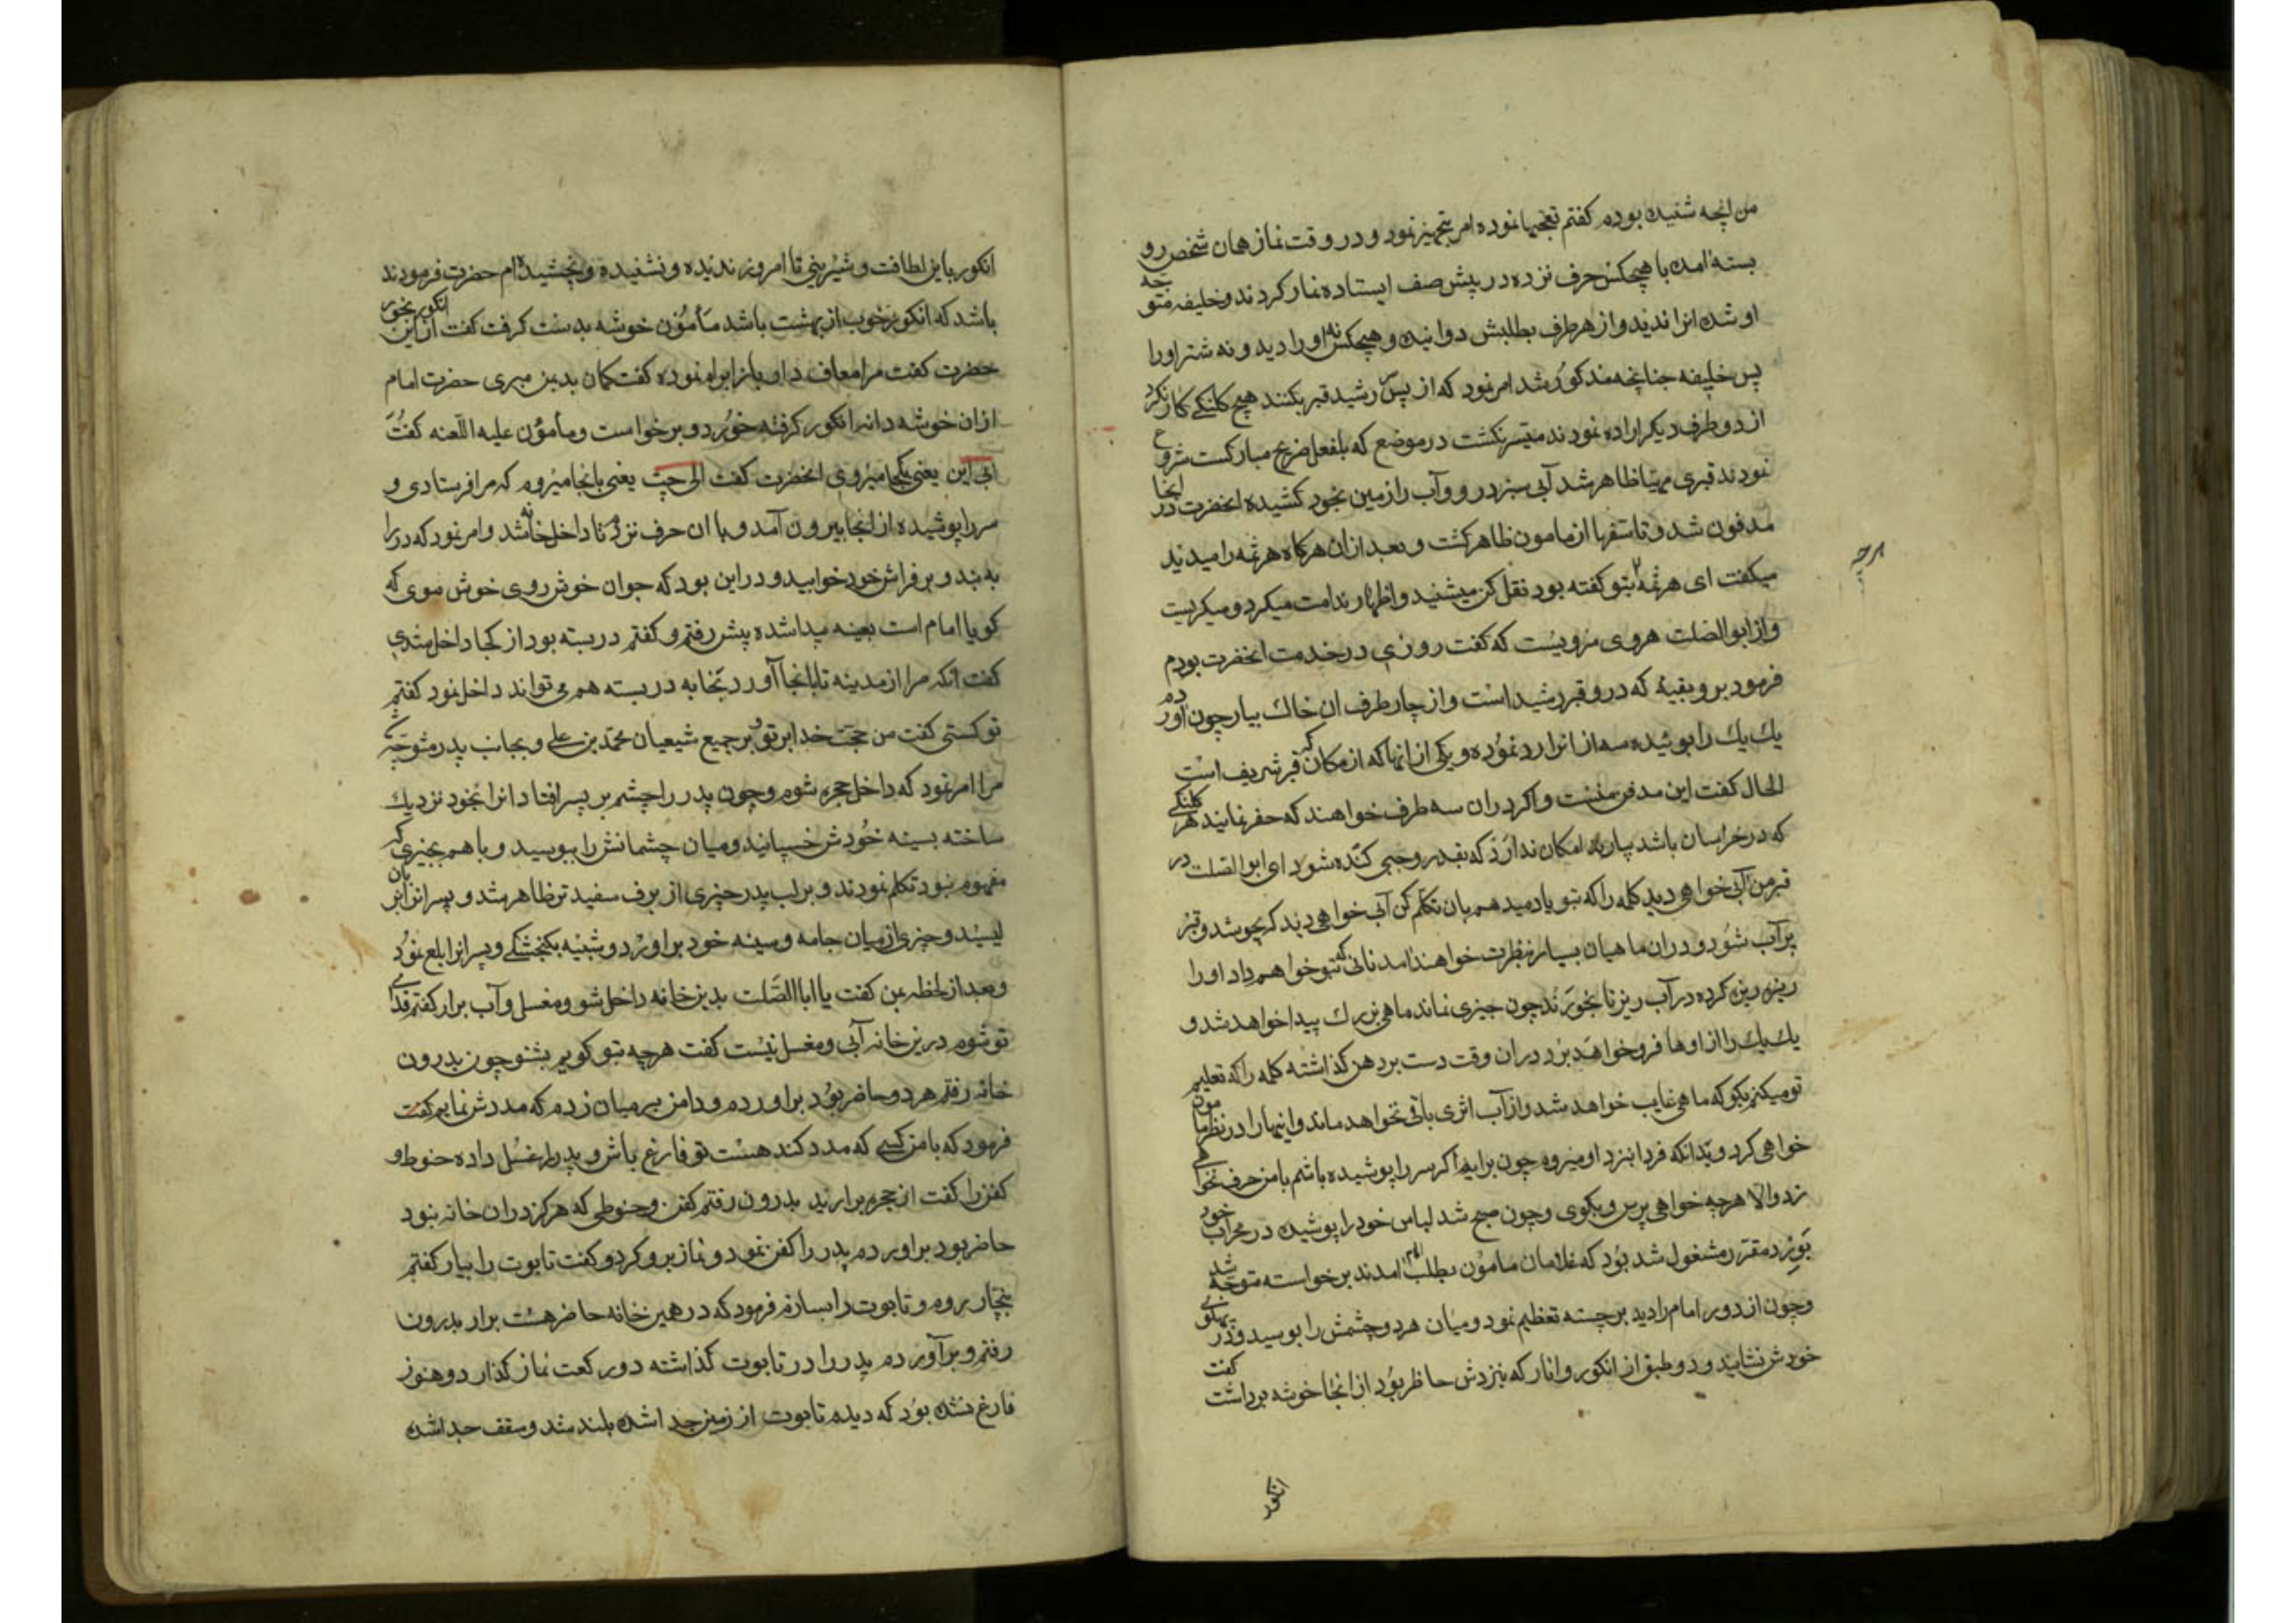 من انچه شنیده بودم گفتم تعجبها نموده امر بتجهیز نمود و در وقت نماز همان شخص رو
بسته امده با هیچکس حرف نزده در پیش صف ایستاده نماز کردند و خلیفه متوجه
او شده انرا ندید و از هر طرف بطلبش دوانیده و هیچکس نه او را دید و نه شتر او را
پس خلیفه چنانچه مذکور شد امر نمود که از پس سر رشید قبر بکنند هیچ کلنگی کار نکرد
از دو طرف دیگر اراده نمودند میسر نکشت در موضع که بالفعل ضریح مبارکست شروع
نمودند قبری مهیا ظاهر شد آبی سبز در و و آب را زمین بخود کشیده انحضرت در انجا
مدفون شد و تاسفها از مامون ظاهر کشت و بعد از ان هرکاه هرثمه را میدیدند
میکفت ای هرثمه بتو کفته بود نقل کن میشنید و اظهار ندامت میکرد و میکریست
و از ابو الصلت هروی مرویست که کفت روزی در خدمت انحضرت بودم
فرمود برو بقبهٔ که در و قبر رشید است و از چار طرف ان خاك بیار چون اوردم
یك یك را بوئیده سه از انرا رد نموده و یکی از انها که از مکان قبر شریف است که
الحال کفت این مدفن منست و اکر در ان سه طرف خواهند که حفر نمایند هر کلنکی
که در خراسان باشد بیارند امکان ندارد که بقدر وجبی کنده شود ای ابو الصلت در
قبر من آبی خواهی دید کلمه را که بتو یاد میدهم بان تکلم کن آبی خواهی دید که بجوشد و قبر
پر آب شود و دران ماهیان بسیار بنظرت خواهند امد نانی که بتو خواهم داد او را
ریزه ریزه کرده در آب ریز تا بخورند چون چیزی نماند ماهی بزرك پیدا خواهد شد و
یك یك را از اوها فرو خواهد برد در ان وقت دست بر دهن کذاشته کلمه را که تعلیم
تو میکنم بکو که ماهی غایب خواهد شد و از آب اثری باقی نخواهد ماند و اینها را در نظر مامون
خواهی کرد و بدانکه فردا بنزد او میروم چون برایم اکر سر را پوشیده باشم با من حرف نخواهی
زد و الا هرچه خواهی پرس و بکوی و چون صبح شد لباس خود را پوشیده در محراب خود
بورد مقرر مشغول شد بود که غلامان مامون بطلب امام امدند برخواسته متوجه شد
و چون از دور امام را دید برجسته تعظیم نمود و میان هر دو چشمش را بوسید و در پهلوی
خودش نشانید و دو طبق از انکور و انار که بنزدش حاظر بود از انجا خوشه برداشت کفت
انکور
انکور باین لطافت و شیرینی تا امروز ندیده و نشنیده و نچشیده ام حضرت فرمودند
باشد که انکور خوب از بهشت باشد مأمون خوشه بدست کرفت کفت از این انکور بخور
حضرت کفت مرا معاف دار باز ابرام نموده کفت کمان بد بمن میبری حضرت امام
از ان خوشه دانه انکور کرفته خورد و برخواست و مأمون علیه اللعنه کفت
الی این یعنی بکجا میروی انحضرت کفت الی حیث یعنی بانجا میروم که مرا فرستادی و
سر را پوشیده از انجا بیرون آمد و با ان حرف نزدم تا داخل خانه شد و امر نمود که در را
به بند و بر فراش خود خوابید و در این بود که جوان خوش روی خوش موی که
کویا امام است بعینه پیدا شده پیش رفتم و کفتم در بسته بود از کجا داخل شدی
کفت انکه مرا از مدینه تا بانجا آورد بخانه در بسته هم می تواند داخل نمود کفتم
تو کستی کفت من حجت خدا بر تو و بر جمیع شیعیان محمد بن علی و بجانب پدر متوجه شد
مرا امر نمود که داخل حجره شوم و چون پدر را چشم بر پسر افتاد انرا بخود نزدیك
ساخته بسینه خودش خسپانید و میان چشمانش را ببوسید و با هم بچیزی که
مفهوم نبود تکلم نمودند و بر لب پدر چیزی از برف سفید تر ظاهر شد و پسر انرا بزبان
لیسید و چیزی از میان جامه و سینه خود براورد و شبیه بکنجشکی و پسر انرا بلع نمود
و بعد از لحظه بمن کفت یا ابا الصلت بدین خانه داخل شو و مغسل و آب برار کفتم فدای
تو شوم در ین خانه آبی و مغسل نیست کفت هرچه بتو کویم بشنو چون بدرون
خانه رفتم هر دو حاضر بود براوردم و دامن بر میان زدم که مددش نمایم کفت
فرمود که با من کسی که مدد کند هست تو فارغ باش و پدر را غسل داده حنوط و
کفن را کفت از حجره برارید بدرون رفتم کفن و حنوطی که هرکز در ان خانه نبود
حاضر بود براوردم پدر را کفن نمود و نماز برو کرد و کفت تابوت را بیار کفتم
بنجار بروم و تابوت را بسازم فرمود که در همین خانه حاضر هست برار بدرون
رفتم و برآوردم پدر را در تابوت کذاشته دو رکعت نماز کذارد و هنوز
فارغ نشده بود که دیدم تابوت از زمین جدا شده بلند شد و سقف جدا شده